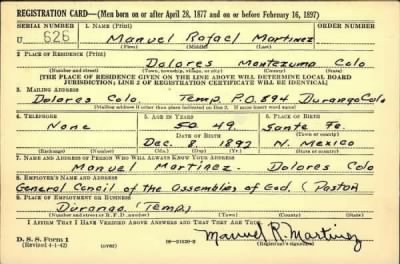 REGISTRATION CARD—(Men born on or after April 28, 1877 and on or before February 16, 1897)
SERIAL NUMBER 1. NAME (Print) ORDER NUMBER
U 626 Manuel Rafael Martinez
(First) (Middle) (Last)
2. PLACE OF RESIDENCE (Print)
Dolores Montezuma Colo
(Number and street) (Town, township, village, or city) (County) (State)
[THE PLACE OF RESIDENCE GIVEN ON THE LINE ABOVE WILL DETERMINE LOCAL BOARD
JURISDICTION; LINE 2 OF REGISTRATION CERTIFICATE WILL BE IDENTICAL]
3. MAILING ADDRESS
Dolores Colo. Temp. P.O. 894 Durango Colo
[Mailing address if other than place indicated on line 2. If same insert word same]
4. TELEPHONE 5. AGE IN YEARS 6. PLACE OF BIRTH
None 50 49. Sante Fe.
DATE OF BIRTH (Town or county)
Dec. 8 1892 N. Mexico
(Exchange) (Number) (Mo.) (Day) (Yr.) (State or country)
7. NAME AND ADDRESS OF PERSON WHO WILL ALWAYS KNOW YOUR ADDRESS
Manuel Martinez. Dolores Colo
8. EMPLOYER'S NAME AND ADDRESS
General Concil of the Assemblies of God. (Pastor
9. PLACE OF EMPLOYMENT OR BUSINESS
Durango. (Temp)
(Number and street or R. F. D. number) (Town) (County) (State)
I AFFIRM THAT I HAVE VERIFIED ABOVE ANSWERS AND THAT THEY ARE TRUE.
D. S. S. Form 1 Manuel R. Martinez
(Revised 4-1-42) (over) 16—21630-2 (Registrant's signature)